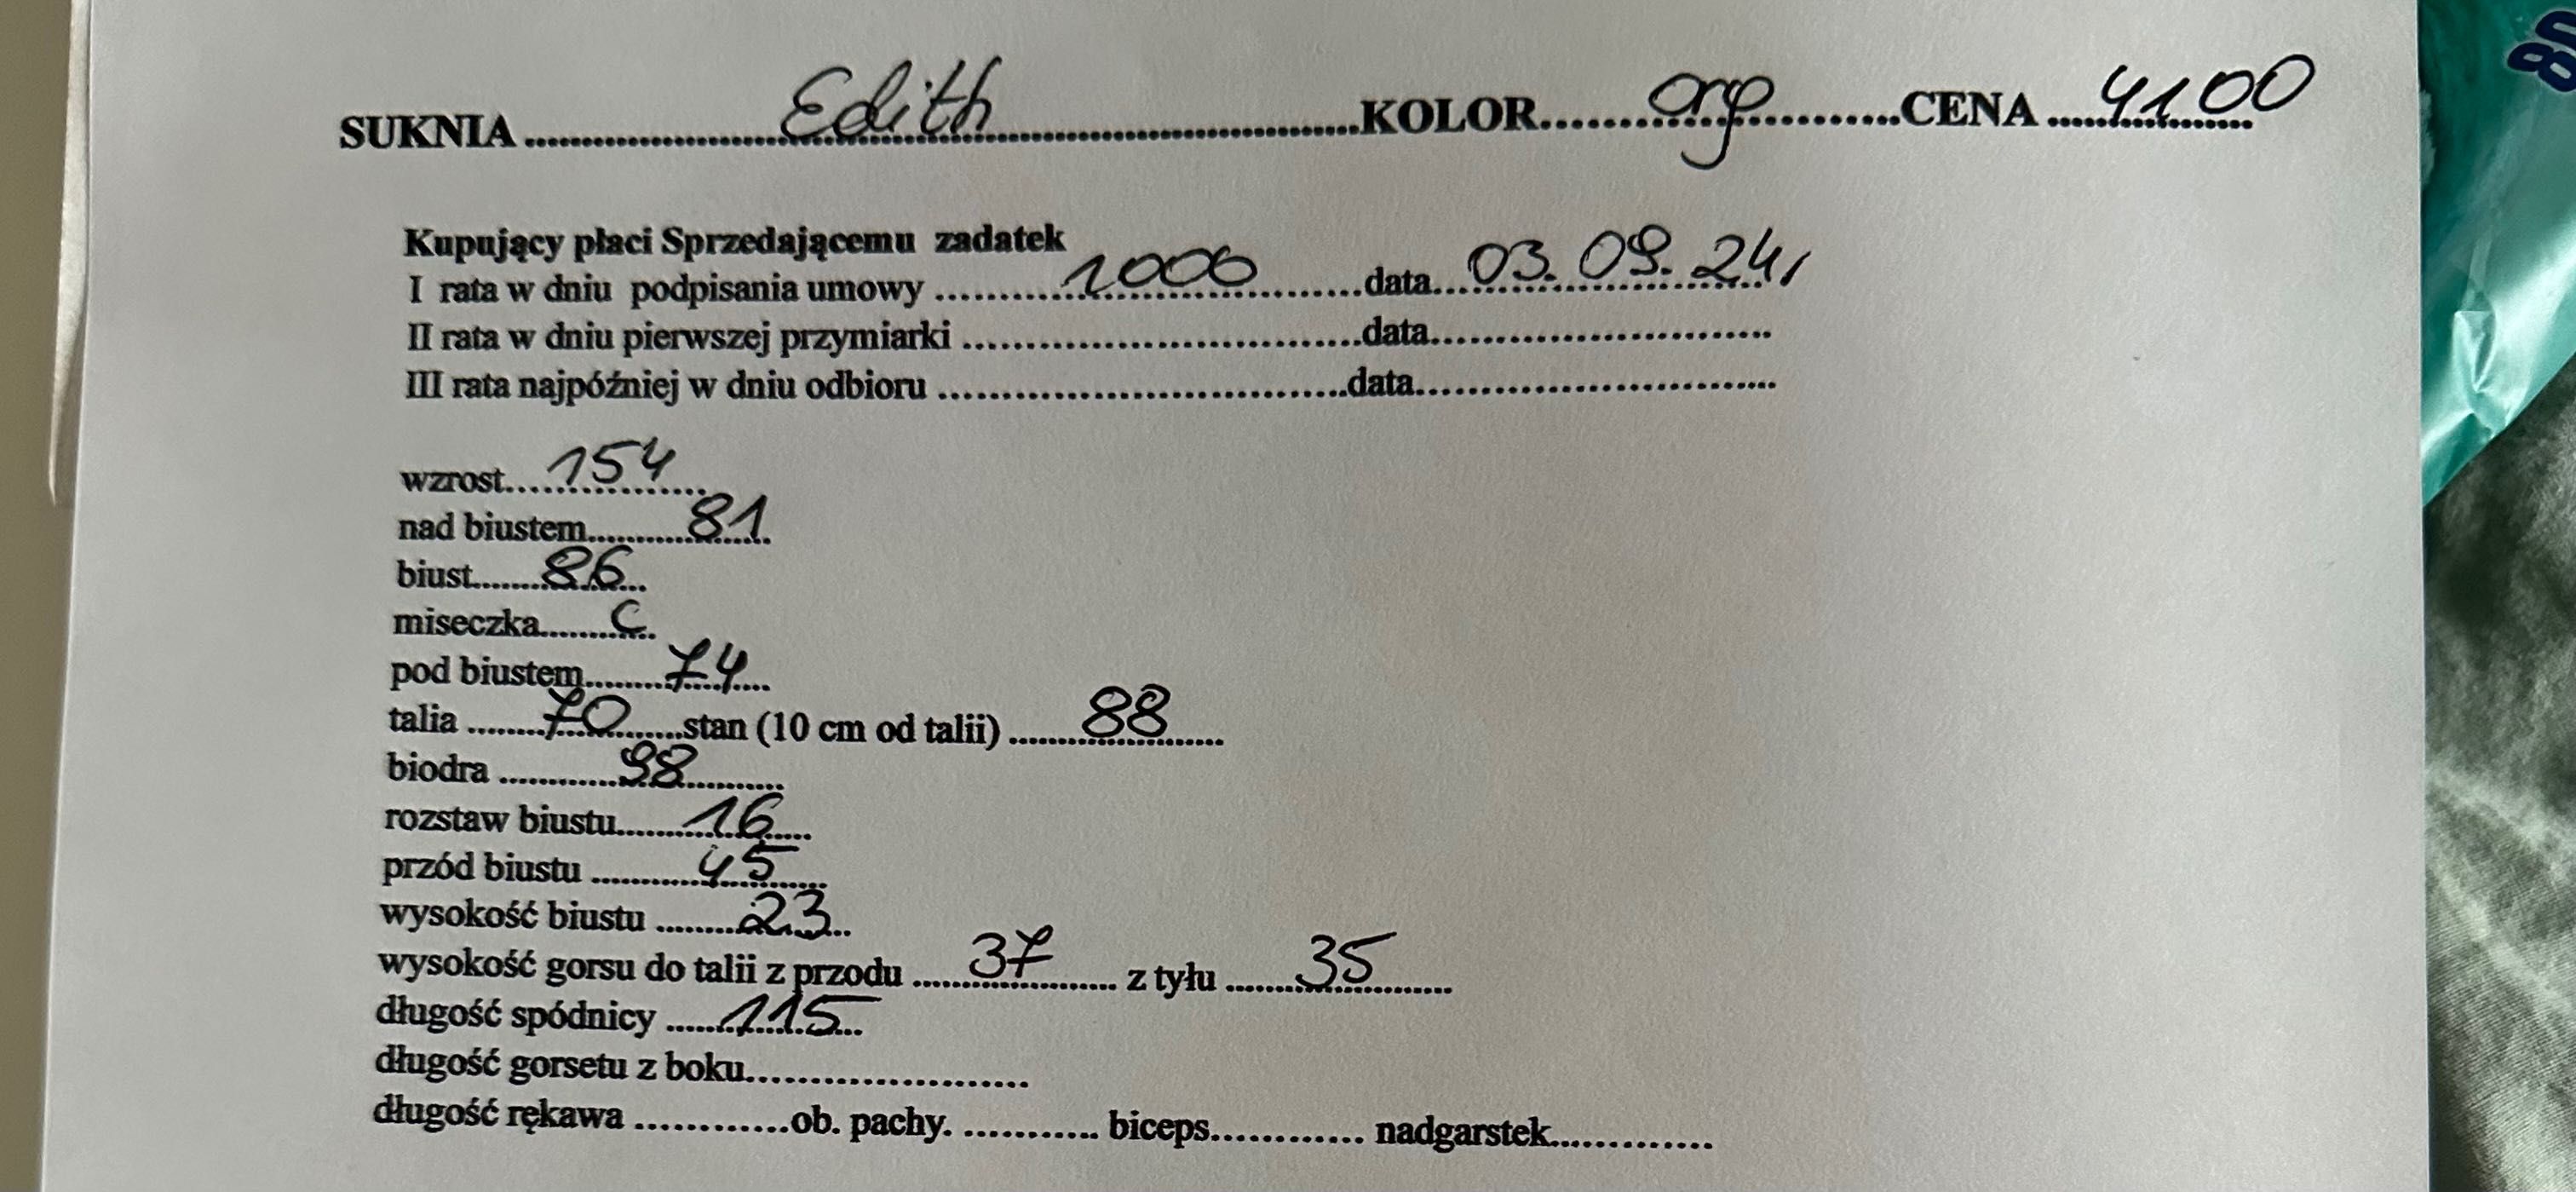 SUKNIA ........ Edith ........ KOLOR ........ org ........ CENA ........ 4100
Kupujący płaci Sprzedającemu zadatek
I rata w dniu podpisania umowy ........ 1000 ........ data ........ 03.09.24r
II rata w dniu pierwszej przymiarki ........ data ........
III rata najpóźniej w dniu odbioru ........ data ........
wzrost ........ 154
nad biustem ........ 81
biust ........ 86
miseczka ........ C
pod biustem ........ 74
talia ........ 70 ........ stan (10 cm od talii) ........ 88
biodra ........ 98
rozstaw biustu ........ 16
przód biustu ........ 45
wysokość biustu ........ 23
wysokość gorsu do talii z przodu ........ 37 ........ z tyłu ........ 35
długość spódnicy ........ 115
długość gorsetu z boku ........
długość rękawa ........ ob. pachy. ........ biceps ........ nadgarstek ........